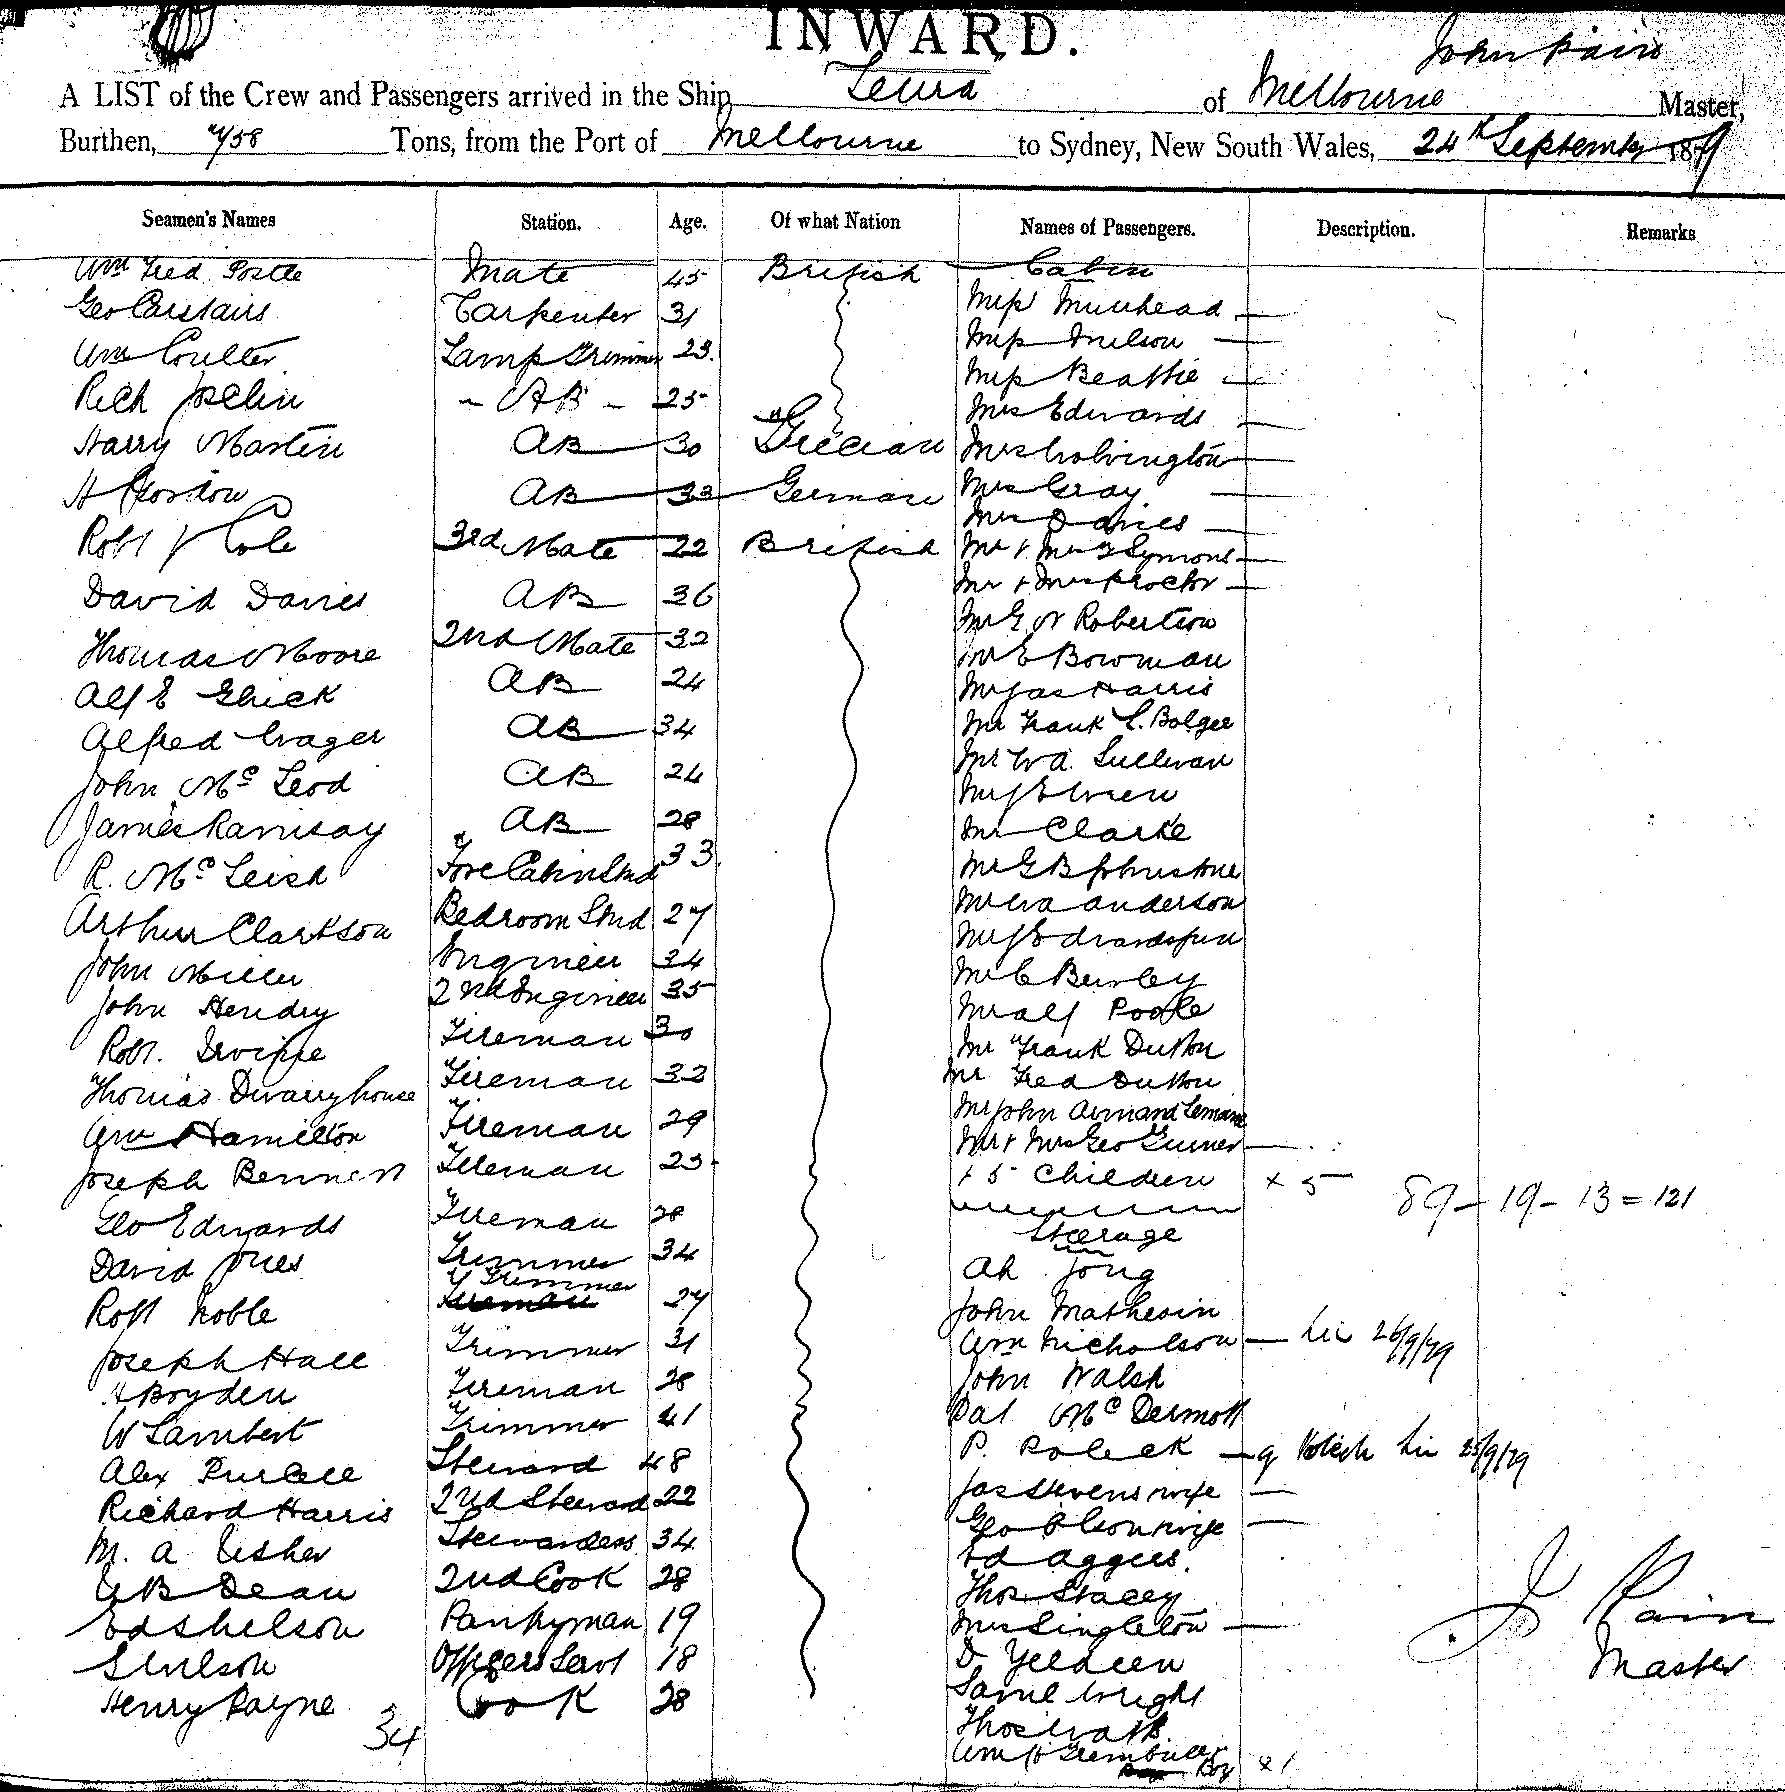 INWARD.
John Pain
A LIST of the Crew and Passengers arrived in the Ship of Melbourne Master,
Burthen, Tons, from the Port of Melbourne to Sydney, New South Wales, 24th September 1879
Seamen's Names Station. Age. Of what Nation Names of Passengers. Description. Remarks
Wm Fred Postle Mate 45 British Cabin
Geo Carstairs Carpenter 31 Miss Muirhead
Wm Coulter Lamp Trimmer 23. Miss
Rich Joselin - AB - 25 Miss Beattie
Mrs Edwards
Harry Martin AB 30 Grecian Mrs Wolvington
H Gordon AB 33 German Mrs Gray
Mrs Davies
Robt Cole 3rd Mate 22 British Mr & Mrs Symons
David Davies AB 36 Mr & Mrs Proctor
Mr G N Robertson
Thomas Moore 2nd Mate 32 Mr E Bowman
Alf E AB 24 Mr Jas Harris
Alfred AB 34 Mr Frank C. Bolger
John McLeod AB 24 Mr W A. Sullivan
Mr J E
James Ramsay AB 28 Mr Clarke
R. McLeish Fore Cabin Stwd 33 Mr G B Johnstone
Arthur Clarkson Bedroom Stwd 27 Mr W A Anderson
John Miller Engineer 34 Mr
John Hendry 2nd Engineer 35 Mr C
Mr Alf Poole
Robt. Fireman 30 Mr Frank Dutton
Thomas Dwarryhouse Fireman 32 Mr Fred Dutton
Mr John Armand
Wm Hamilton Fireman 29 Mr & Mrs Geo
Joseph Bennett Fireman 23 + 5 Children x 5
89 - 19 - 13 = 121
Geo Edwards Fireman 28 Steerage
David Jones Trimmer 34 Ah Jong
Robt Noble Trimmer 27 John
Joseph Hall Trimmer 31 Wm Nicholson 26/9/79
H Boyden Fireman 28 John Walsh
W Lambert Trimmer 41 Pat McDermott
Alex Purcell Steward 48 P. 25/9/79
Richard Harris 2nd Steward 22 Jas Stevens wife
M. A Usher Stewardess 34 Geo wife
Ed
B Dean 2nd Cook 28 Thos Stacey
Ed Pantryman 19 Mrs Singleton
Officers Servt 18 D
Henry Payne Cook 28 Saml Wright
34
Thos
Wm H Boy x 1
J Pain
Master